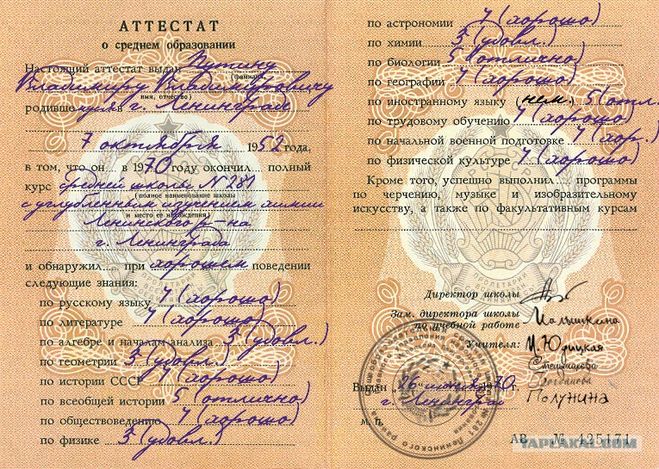 АТТЕСТАТ
о среднем образовании
Настоящий аттестат выдан Путину
Владимиру Владимировичу
имя, отчество)
родившемуся в г. Ленинграде
7 октября 1952 года,
в том, что он... в 1970 году окончил... полный
курс средней школы № 281
(полное наименование школы
с углубленным изучением химии
и место ее нахождения)
Ленинского р-на
г. Ленинграда
и обнаружил... при хорошем поведении
следующие знания:
по русскому языку 4 (хорошо)
по литературе 4 (хорошо)
по алгебре и началам анализа 3 (удовл.)
по геометрии 3 (удовл.)
по истории СССР 4 (хорошо)
по всеобщей истории 5 (отлично)
по обществоведению 4 (хорошо)
по физике 3 (удовл.)
по астрономии 4 (хорошо)
по химии 3 (удовл.)
по биологии 5 (отлично)
по географии 4 (хорошо)
по иностранному языку (нем.) 5 (отл.
по трудовому обучению 4 (хорошо)
по начальной военной подготовке 4 (хор.)
по физической культуре 4 (хорошо)
Кроме того, успешно выполнил... программы
по черчению, музыке и изобразительному
искусству, а также по факультативным курсам
Директор школы
Зам. директора школы
по учебной работе Малышкина
Учителя: И. Юдицкая
Богданова
Полунина
Выдан 26 июня 1970 г.
г. Ленинград
М. П.
№ 281 Ленинского района
АВ № 425171
YAPLAKAL.COM